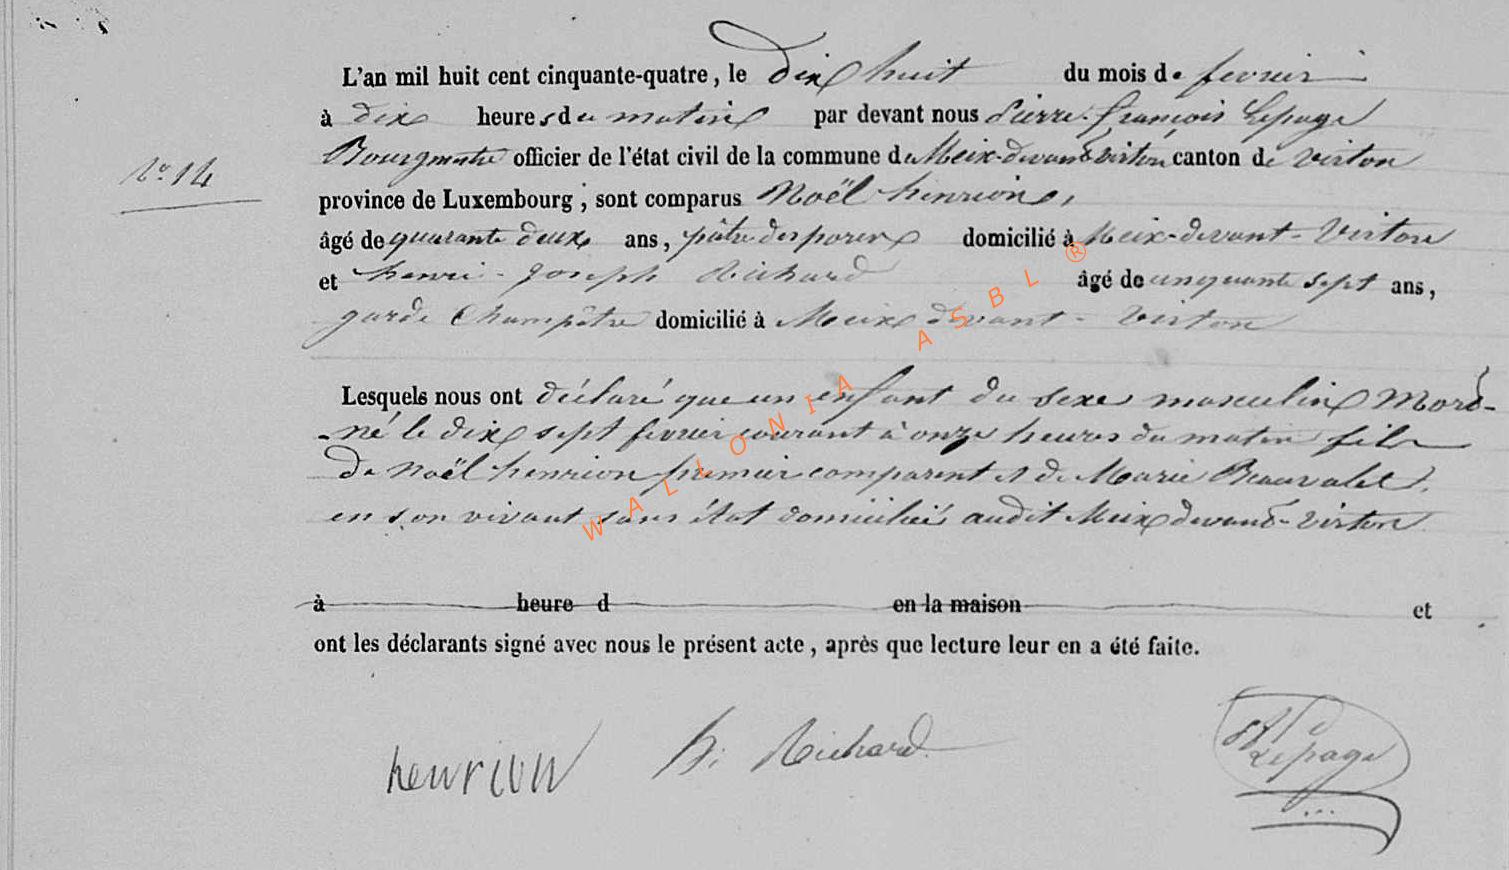 L'an mil huit cent cinquante-quatre, le dix huit du mois de fevrier
à dix heures du matin par devant nous Pierre-françois Lepage
Bourgmestre officier de l'état civil de la commune de Meix-devant-virton canton de virton
N° 14
province de Luxembourg, sont comparus Noël henrion,
âgé de quarante deux ans, pâtre des porcs domicilié à Meix-devant-Virton
et henri-Joseph Richard âgé de cinquante sept ans,
garde Champêtre domicilié à Meix devant-Virton
Lesquels nous ont déclaré que un enfant du sexe masculin Mort-
-né le dix sept fevrier courant à onze heures du matin fils
de Noël henrion premier comparent et de Marie
en son vivant sans état domiciliés audit Meix devant-virton
à heure d en la maison et
ont les déclarants signé avec nous le présent acte, après que lecture leur en a été faite.
henrion h. Richard Lepage
WALLONIA ASBL ®